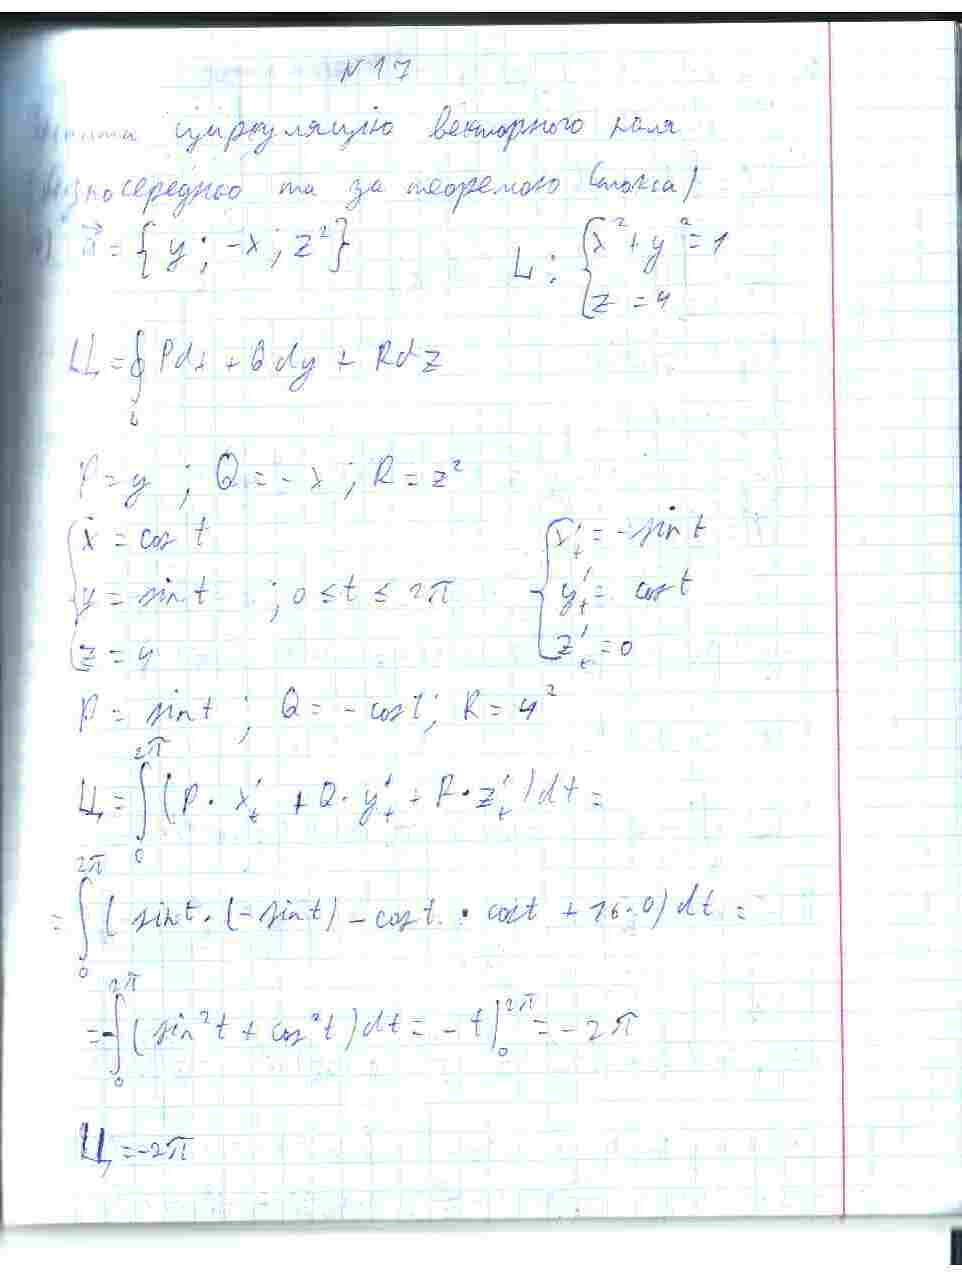 N 17
циркуляцію векторного поля
та за теоремою Стокса)
a⃗ = { y ; -x ; z² }   L : { x² + y² = 1
z = 4
Ц = ∮_L Pdx + Qdy + Rdz
P = y ; Q = - x ; R = z²
{ x = cos t   { x'_t = - sin t
y = sin t ; 0 ≤ t ≤ 2π   y'_t = cos t
z = 4   z'_t = 0
P = sin t ; Q = - cos t ; R = 4²
Ц = ∫_0^{2π} ( P · x'_t + Q · y'_t + R · z'_t ) dt =
= ∫_0^{2π} ( sin t · (- sin t) - cos t · cos t + 16 · 0 ) dt =
= - ∫_0^{2π} ( sin² t + cos² t ) dt = - t |_0^{2π} = - 2π
Ц = - 2π